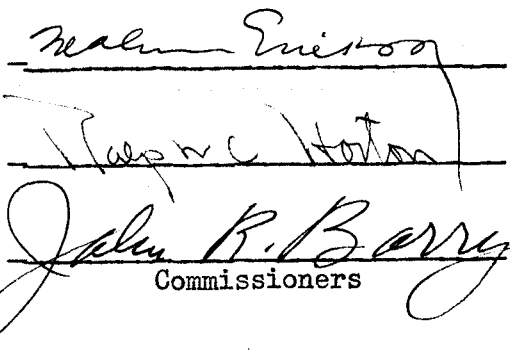 Erickson
Ralph C Horton
John R. Barry
Commissioners